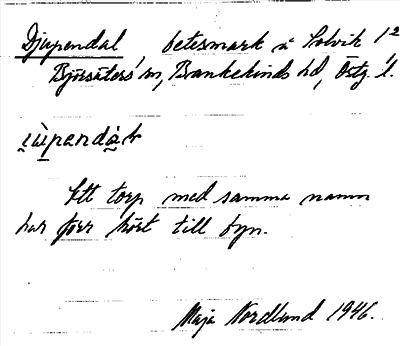 Djupendal, betesmark å Solvik 1 2
Björsäters sn, Bankekinds hd, Östg. l.
Ett torp med samma namn
har förr hört till byn.
Maja Nordlund 1946.